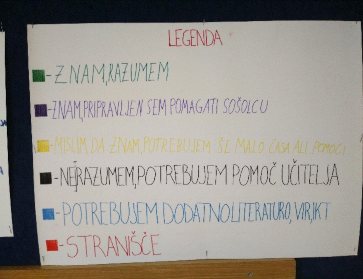 LEGENDA
- ZNAM, RAZUMEM
- ZNAM, PRIPRAVLJEN SEM POMAGATI SOŠOLCU
- MISLIM DA ZNAM, POTREBUJEM ŠE MALO ČASA ALI POMOČI
- NE RAZUMEM, POTREBUJEM POMOČ UČITELJA
- POTREBUJEM DODATNO LITERATURO, VIR, IKT
- STRANIŠČE